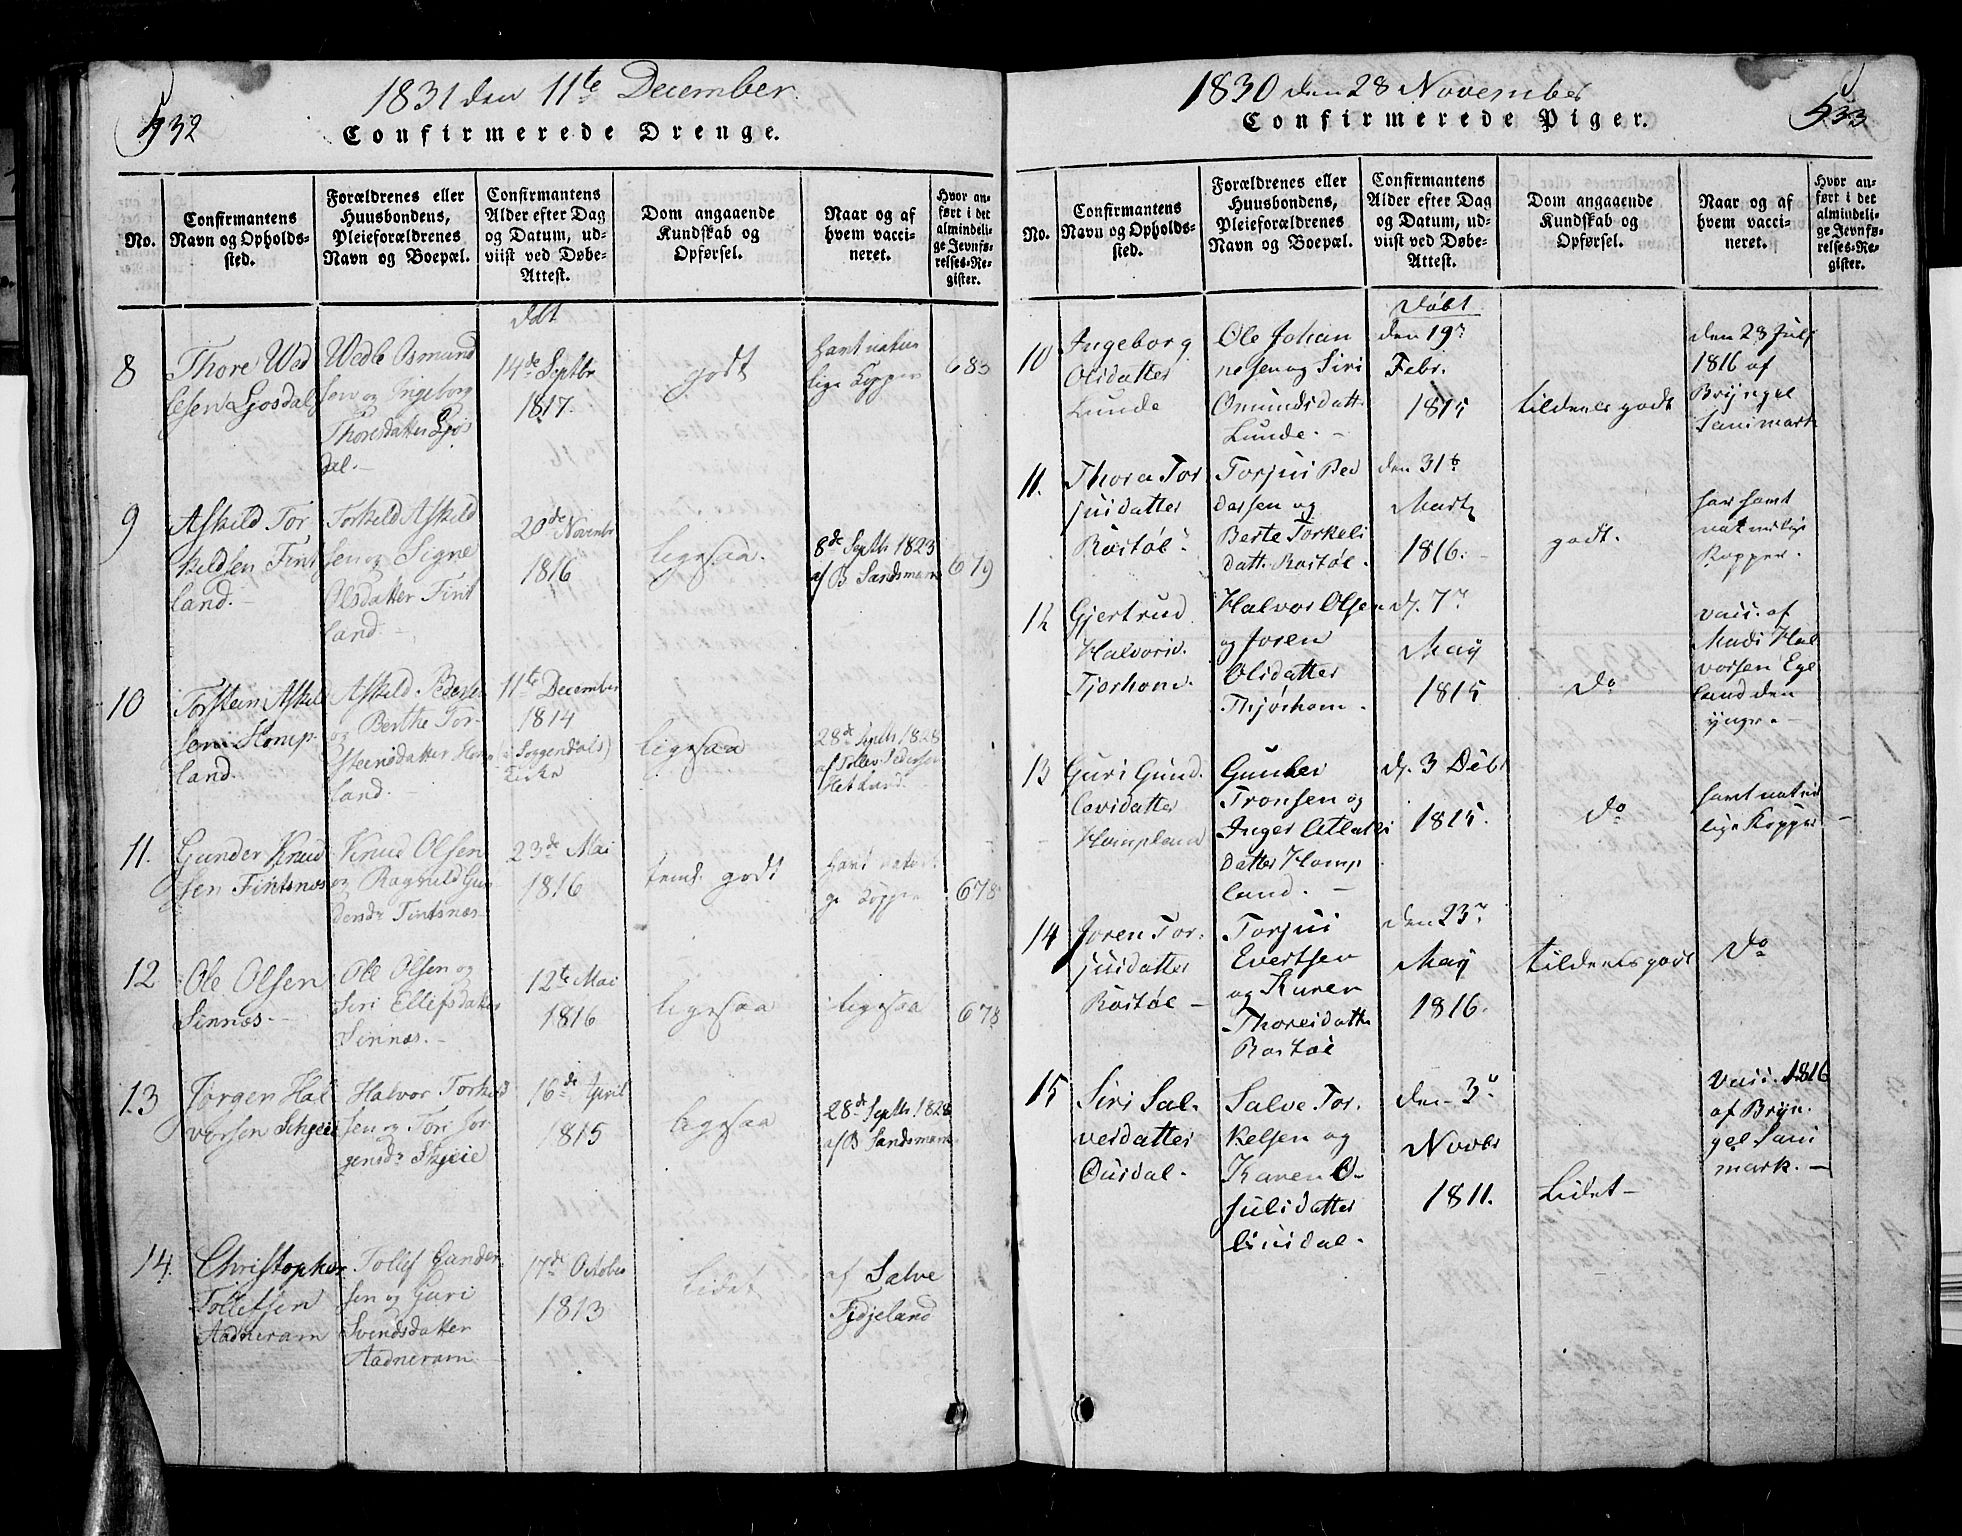 532
1831 den 11te December.
Confirmerede Drenge.
No.
Confirmantens Navn og Opholdssted.
Forældrenes eller Huusbondens, Pleieforældrenes Navn og Boepæl.
Confirmantens Alder efter Dag og Datum, udviist ved Døbe-Attest.
Dom angaaende Kundskab og Opførsel.
Naar og af hvem vaccineret.
Hvor anført i det almindelige Jevnførelses-Register.
8
Thore Wed
lesen Ljosdal
Wedle Osmund
sen og Ingeborg
Thoresdatter Ljós
dal.-
Døbt
14de Septbr
1817.
godt
havt natur
lige Kopper
683
9
Askild Tor
kildsen Fint
land.-
Torkild Askild
sen og Signe
Olsdatter Fint
land.-
20de Novembr
1816
ligesaa.
8de Septb 1823
af B Sandsmark
679
10
Torstein Askild
sen Homp-
land.
Askild Peders
og Berthe Tor-
steinsdatter Homp
land.-
11te December
1814
(i Soggendals)
Kirke
ligesaa
28de Septb 1828
af Tollev Pedersen
Hetland.
11.
Gunder Knud
sen Fintsnes
Knud Olsen
og Ragnild Gun
dersdr Fintsnæs
23de Mai
1816
tems. godt
havt naturli
ge Kopper
678
12
Ole Olsen
Sinnæs.-
Ole Olsen og
Siri Ellefsdatter
Sinnæs.-
12te Mai
1816
ligesaa
ligesaa
678
13
Jørgen Hal
vorsen Schjeie
Halvor Torkild
sen og Tori Jor
gensdr Skjeie
16de April
1815
ligesaa
28de Septb 1828
af B Sandsmark
14.
Christopher
Tollefsen
Aadneram
Tollef Gunder
sen og Guri
Svendsdatter
Aadneram
17de October
1813
Lidet
af Salve
Fidjeland
533
1830 den 28 November
Confirmerede Piger.
No.
Confirmantens Navn og Opholdssted.
Forældrenes eller Huusbondens, Pleieforældrenes Navn og Boepæl.
Confirmantens Alder efter Dag og Datum, udviist ved Døbe-Attest.
Dom angaaende Kundskab og Opførsel.
Naar og af hvem vaccineret.
Hvor anført i det almindelige Jevnførelses-Register.
10
Ingeborg
Olsdatter
Lunde
Ole Johan
nesen og Siri
Omundsdatt.
Lunde.-
Døbt
den 19n
Febr.
1815
tildeels godt
den 23 Juli
1816 af
Bryngel
Sanmark
11.
Thora Tor
juisdatter
Rostøl
Torjui Ped
dersen og
Berte Torkels
datt. Rostøl.
den 31te
Marty
1816.-
godt.
har havt
naturlige
Kopper.
12
Gjertrud
Halvorsd.
Tjorhom.
Halvor Olsen
og Joren
Olsdatter
Thjórhom.-
d. 7n
May
1815
Do
vacc. af
Mads Hal
vorsen Ege
land den
yngre.-
13
Guri Gund.
levsdatter
Hompland
Gunlev
Tronsen og
Inger Atlaks
datter Homp
land.-
d. 3 Dcbr
1815.
Do
havt natur
lige Kopper.
14
Joren Tor-
juisdatter
Rostøl-
Torjui
Evertsen
og Karen
Thoresdatt.
Rostøl
den 23n
May
1816.
tildeels godt
Do
15
Siri Sal.
vesdatter
Ousdal.
Salve Tor.
kelsen og
Karen O-
sulsdatter
Ousdal.
den 3n
Novbr
1811.
Lidet-
Vacc. 1816
af Bryn.
gel San
mark.-